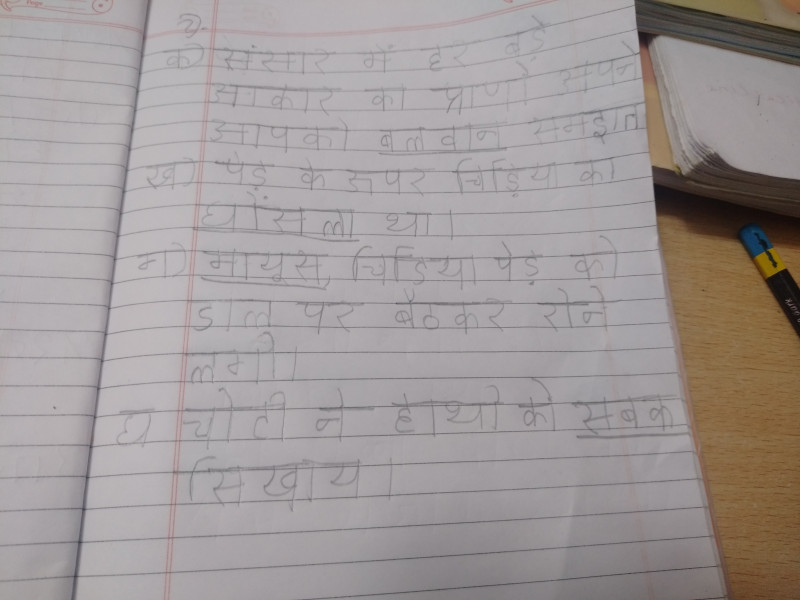 २)
क) संसार में हर बड़े
आकार का प्राणी अपने
आपको बलवान समझत
ख) पेड़ के ऊपर चिड़िया का
घोंसला था।
ग) मायूस चिडिया पेड़ की
डाल पर बैठकर रोने
लगी।
घ चीटी ने हाथी को सबक
सिखाय।